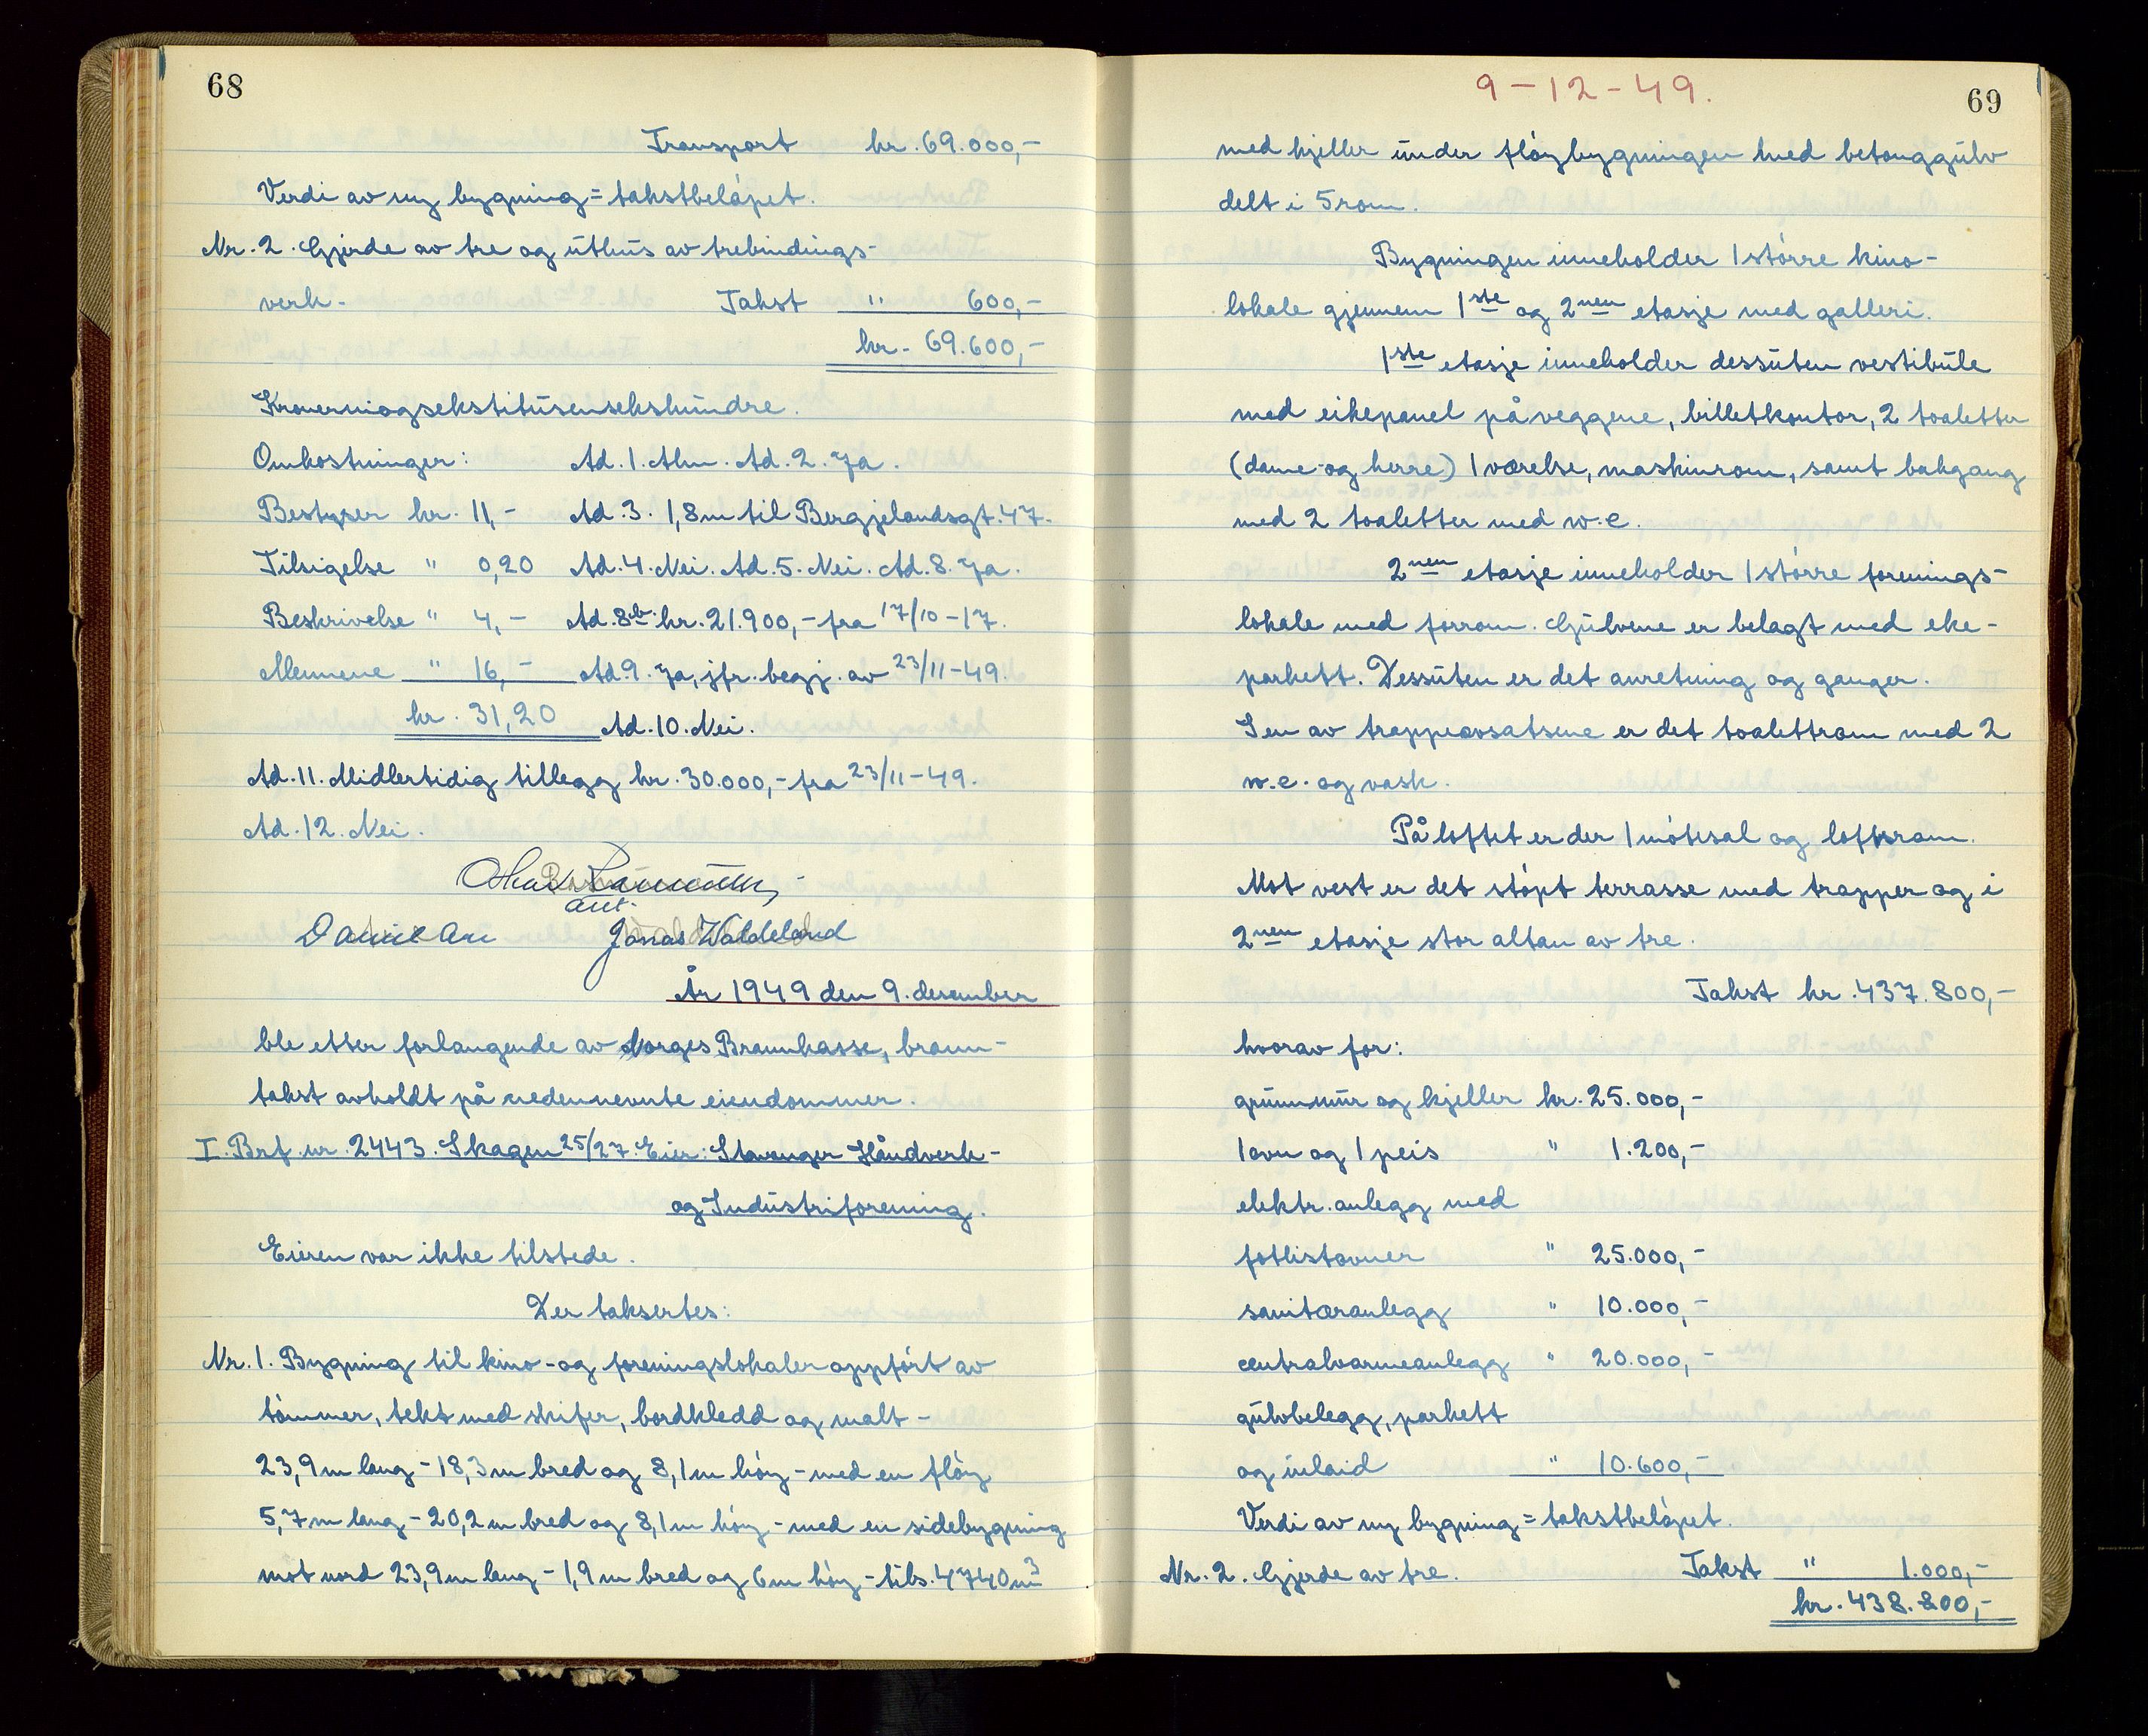 68
Transport kr. 69.000,-
Verdi av ny bygning = takstbeløpet.
Nr. 2. Gjerde av tre og uthus av trebindings-
verk - Takst " 600,-
kr. 69.600,-
Kronerniogsekstitusensekshundre.
Omkostninger: Ad. 1. Alm. Ad. 2. Ja.
Bestyrer kr. 11,- Ad. 3. 1,8 m til Bergjelandsgt. 47.
Tilsigelse " 0,20 Ad. 4. Nei. Ad. 5. Nei. Ad. 8. Ja.
Beskrivelse " 4,- Ad. 8b. kr. 21.900,- fra 17/10-17.
Mennene " 16,- Ad. 9. Ja, jfr. begj. av 23/11-49.
kr. 31,20 Ad. 10. Nei.
Ad. 11. Midlertidig tillegg kr. 30.000,- fra 23/11-49.
Ad. 12. Nei.
ant.
Jonas Waldeland
År 1949 den 9. desember
ble etter forlangende av Norges Brannkasse, brann-
takst avholdt på nedennevnte eiendommer.
I. Brf. nr. 2443. Skagen 25/27. Eier: Stavanger Håndverk-
og Industriforening.
Eieren var ikke tilstede.
Der taksertes:
Nr. 1. Bygning til kino- og foreningslokaler oppført av
tømmer, tekt med skifer, bordkledd og malt -
23,9 m lang - 18,3 m bred og 8,1 m høy - med en fløy
5,7 m lang - 20,2 m bred og 8,1 m høy - med en sidebygning
mot nord 23,9 m lang - 1,9 m bred og 6 m høy - tils. 4740 m3
9-12-49.
69
med kjeller under fløybygningen med betonggulv
delt i 5 rom.
Bygningen inneholder 1 større kino-
lokale gjennem 1ste og 2nen etasje med galleri.
1ste etasje inneholder dessuten vestibule
med eikepanel på veggene, billetkontor, 2 toaletter
(dame- og herre) 1 værelse, maskinrom, samt bakgang
med 2 toaletter med w.c.
2nen etasje inneholder 1 større forenings-
lokale med forrom. Gulvene er belagt med eke-
parkett. Dessuten er det anretning og ganger.
I en av trappeavsatsene er det toalettrom med 2
w.c. og vask.
På loftet er der 1 møtesal og loftsrom.
Mot vest er det støpt terrasse med trapper og i
2nen etasje stor altan av tre.
Takst kr. 437.800,-
hvorav for:
grunnmur og kjeller kr. 25.000,-
1 ovn og 1 peis " 1.200,-
elektr. anlegg med
fotlistovner " 25.000,-
sanitæranlegg " 10.000,-
centralvarmeanlegg " 20.000,-
gulvbelegg, parkett
og inlaid " 10.600,-
Verdi av ny bygning = takstbeløpet.
Nr. 2. Gjerde av tre. Takst " 1.000,-
kr. 438.800,-